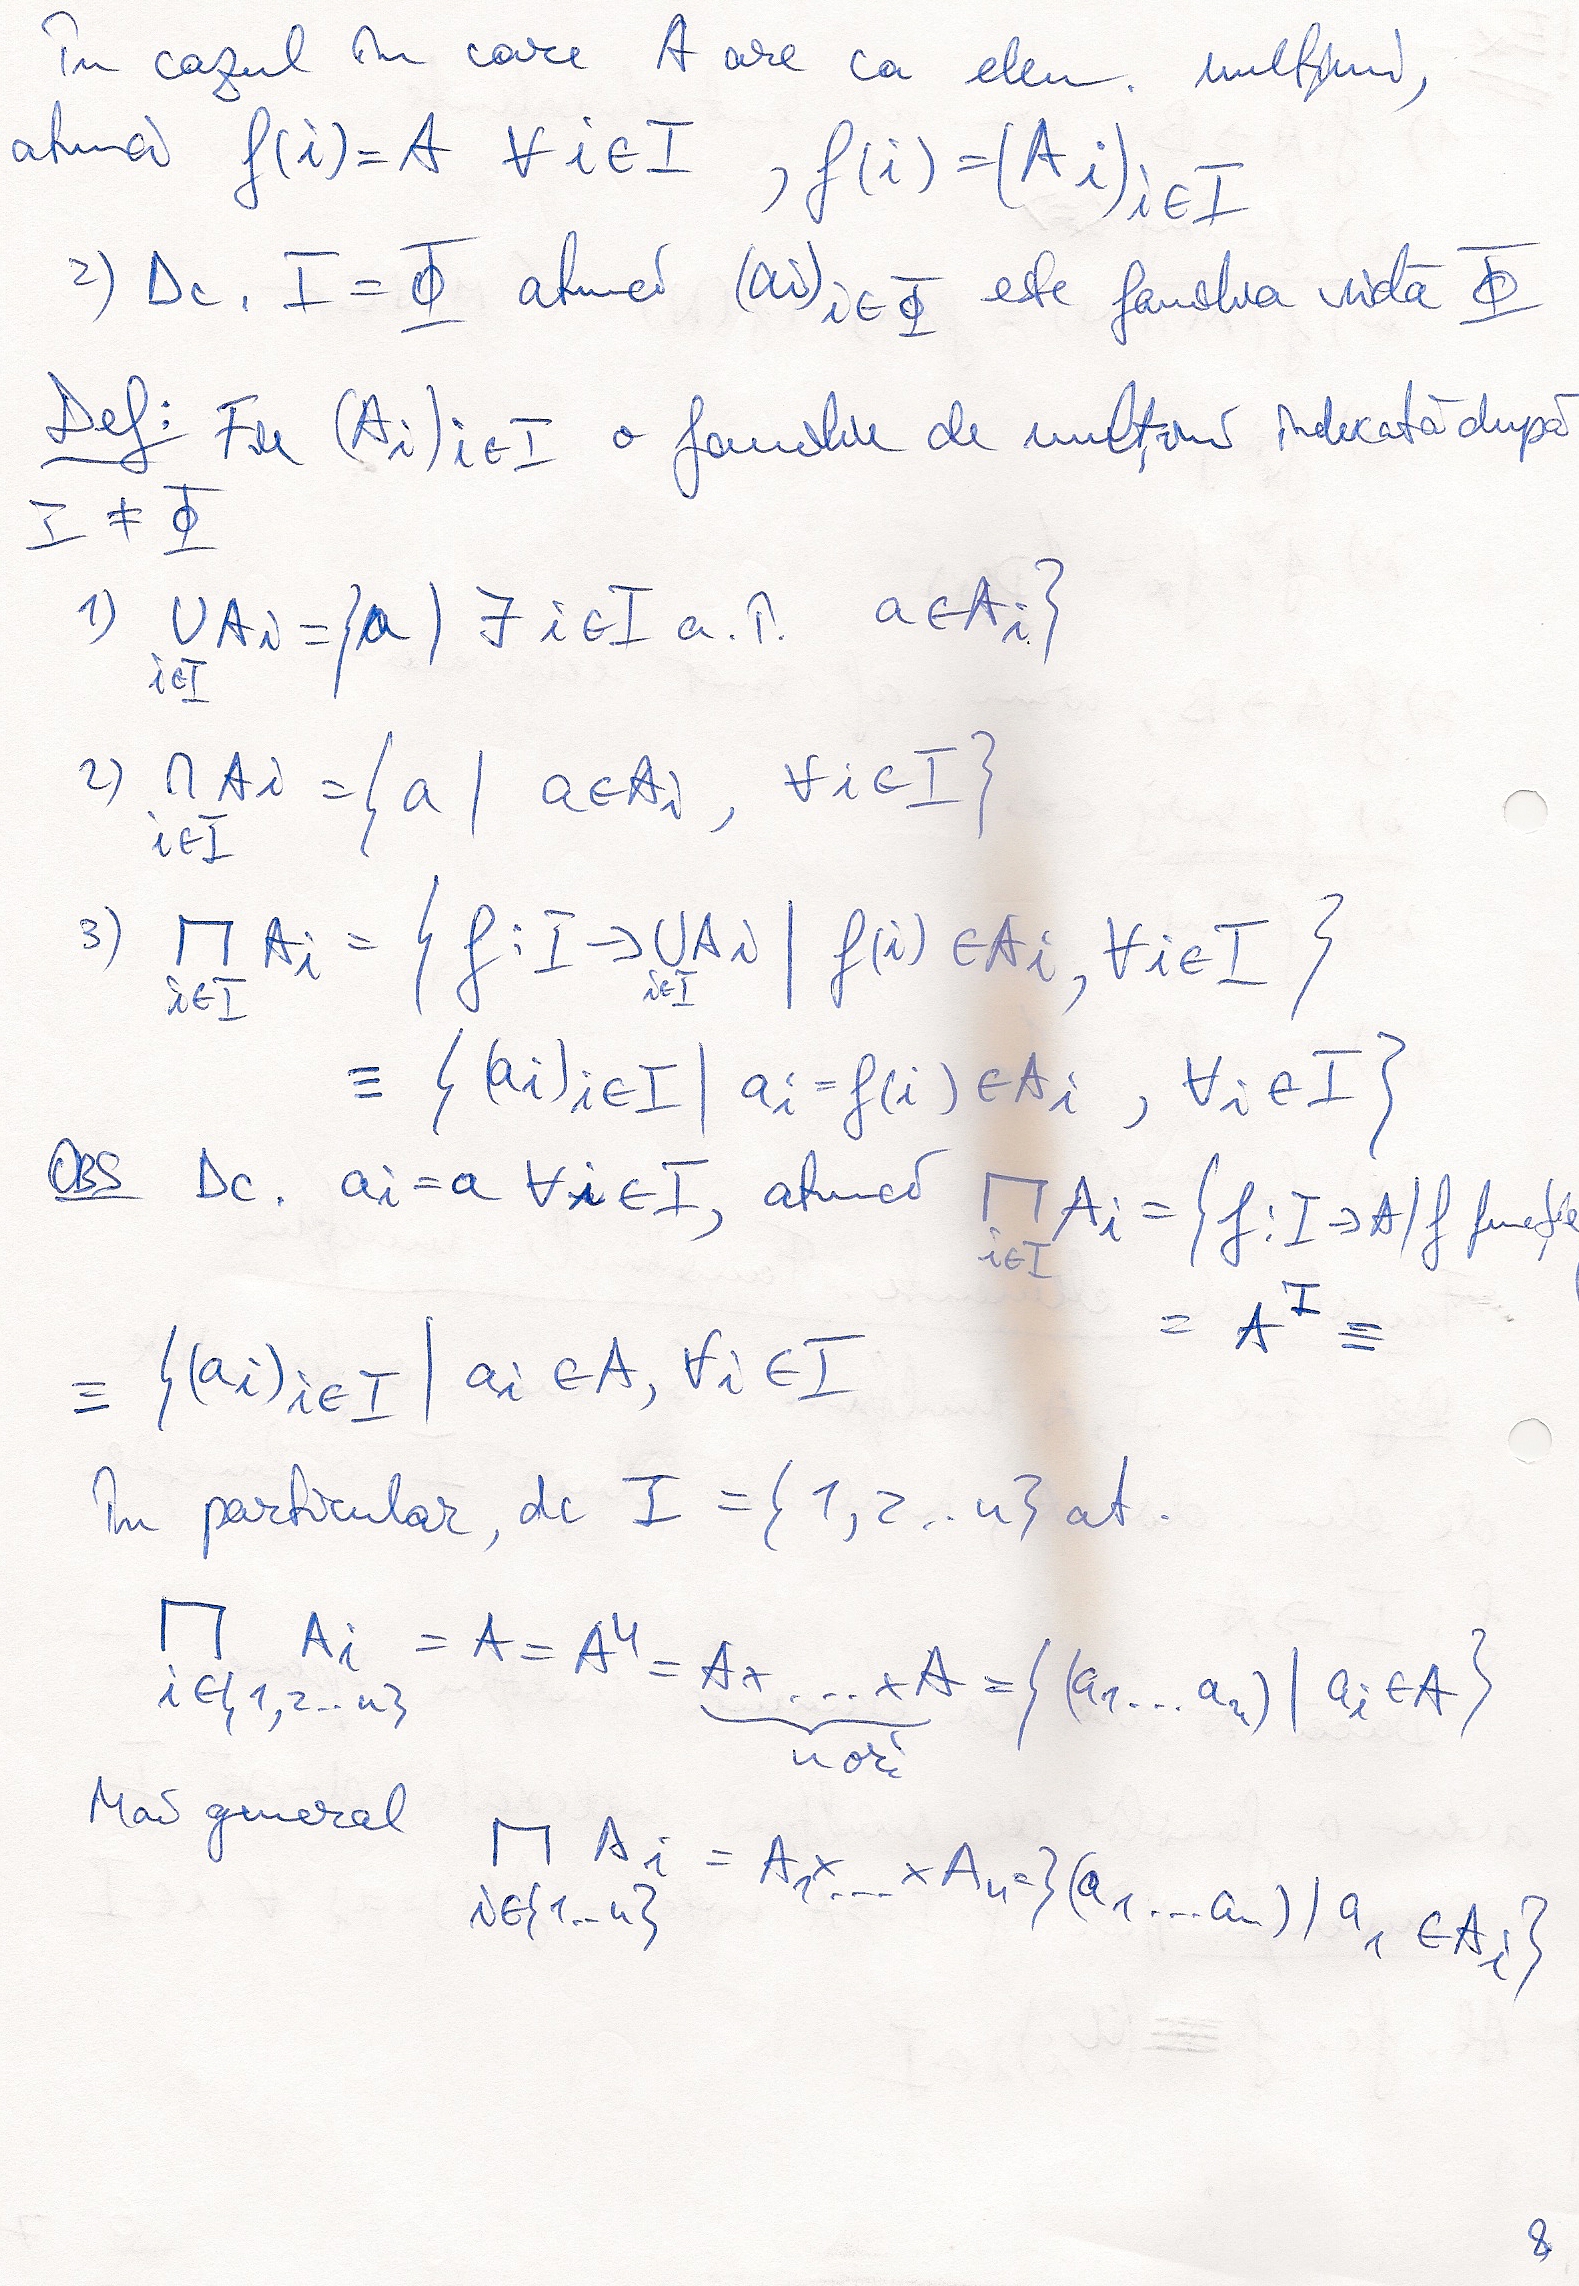 În cazul în care A are ca elem. mulțimi,
atunci f(i)=A ∀ i∈I , f(i)=(Ai)i∈I
2) Dc. I = Φ atunci (ai)i∈Φ este familia vidă Φ
Def: Fie (Ai)i∈I o familie de mulțimi indexată după
I ≠ Φ
1) ∪Ai={a | ∃ i∈I a.î. a∈Ai}
i∈I
2) ∩Ai = {a | a∈Ai , ∀i∈I}
i∈I
3) ∏ Ai = { f:I→∪Ai | f(i) ∈Ai, ∀i∈I }
i∈I i∈I
≡ {(ai)i∈I | ai=f(i)∈Ai , ∀i∈I}
OBS Dc. ai=a ∀i∈I, atunci ∏Ai = {f:I→A/f funcție
i∈I
= A^I ≡
≡ {(ai)i∈I | ai∈A, ∀i∈I
În particular, dc I = {1,2..n} at.
∏ Ai = A = A^n = A×....×A = {(a1...an) | ai∈A}
i∈{1,2..n} n ori
Mai general ∏ Ai = A1×....×An=}(a1....an) | a1 ∈Ai}
i∈{1..n}
8